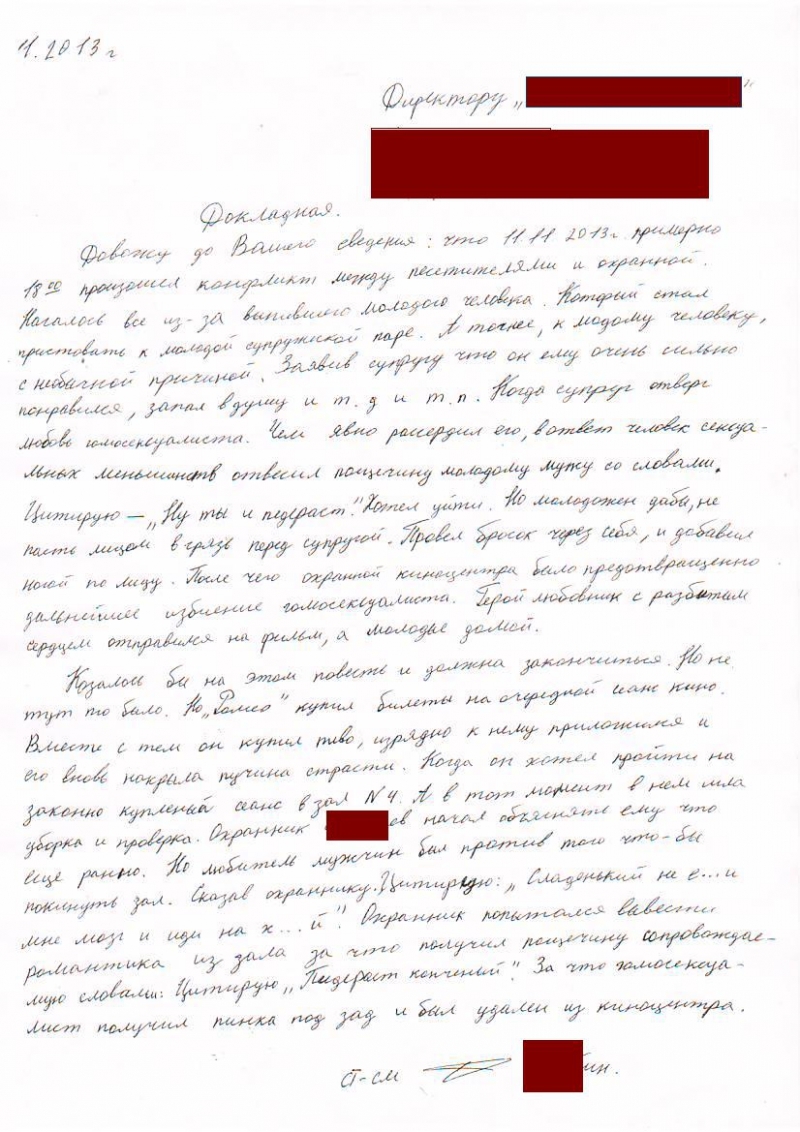 11.2013 г
Директору „ "
Докладная.
Довожу до Вашего сведения: что 11.11 2013 г. примерно
18⁰⁰ произошел конфликт между песетителями и охранной.
Началось все из-за выпившего молодого человека. Который стал
пристовать к молодой супружиской паре. А точнее, к модому человеку,
с необычной причиной. Заявив супругу что он ему очень сильно
понравился, запал в душу и т.д и т.п. Когда супруг отверг
любовь гомосексуалиста. Чем явно рассердил его, в ответ человек сексуа-
льных меньшинств отвесил пощечину молодому мужу со словами.
Цитирую — „Ну ты и педераст". Хотел уйти. Но молодожен дабы, не
пасть лицом в грязь перед супругой. Провел бросок через себя, и добавил
ногой по лицу. После чего охранной киноцентра было предотвращенно
дальнейшее избиение гомосексуалиста. Герой любовник с разбитым
сердцем отправился на фильм, а молодые домой.
Козалось бы на этом повесть и должна закончиться. Но не
тут то было. Но „Ромео" купил билеты на очередной сеанс кино.
Вместе с тем он купил пиво, изрядно к нему приложился и
его вновь накрыла пучина страсти. Когда он хотел пройти на
законно купленый сеанс в зал №4. А в тот момент в нем шла
уборка и проверка. Охранник ев начал объяснять ему что
еще ранно. Но любитель мужчин был против того что-бы
покинуть зал. Сказав охраннику. Цитирую: „Сладенький не е...и
мне мозг и иди на х...й". Охранник попытался вывести
романтика из зала за что получил пощечину сопровождае-
мую словами: Цитирую „Пидераст конченый". За что гомосексуа-
лист получил пинка под зад и был удален из киноцентра.
ст-см ин.